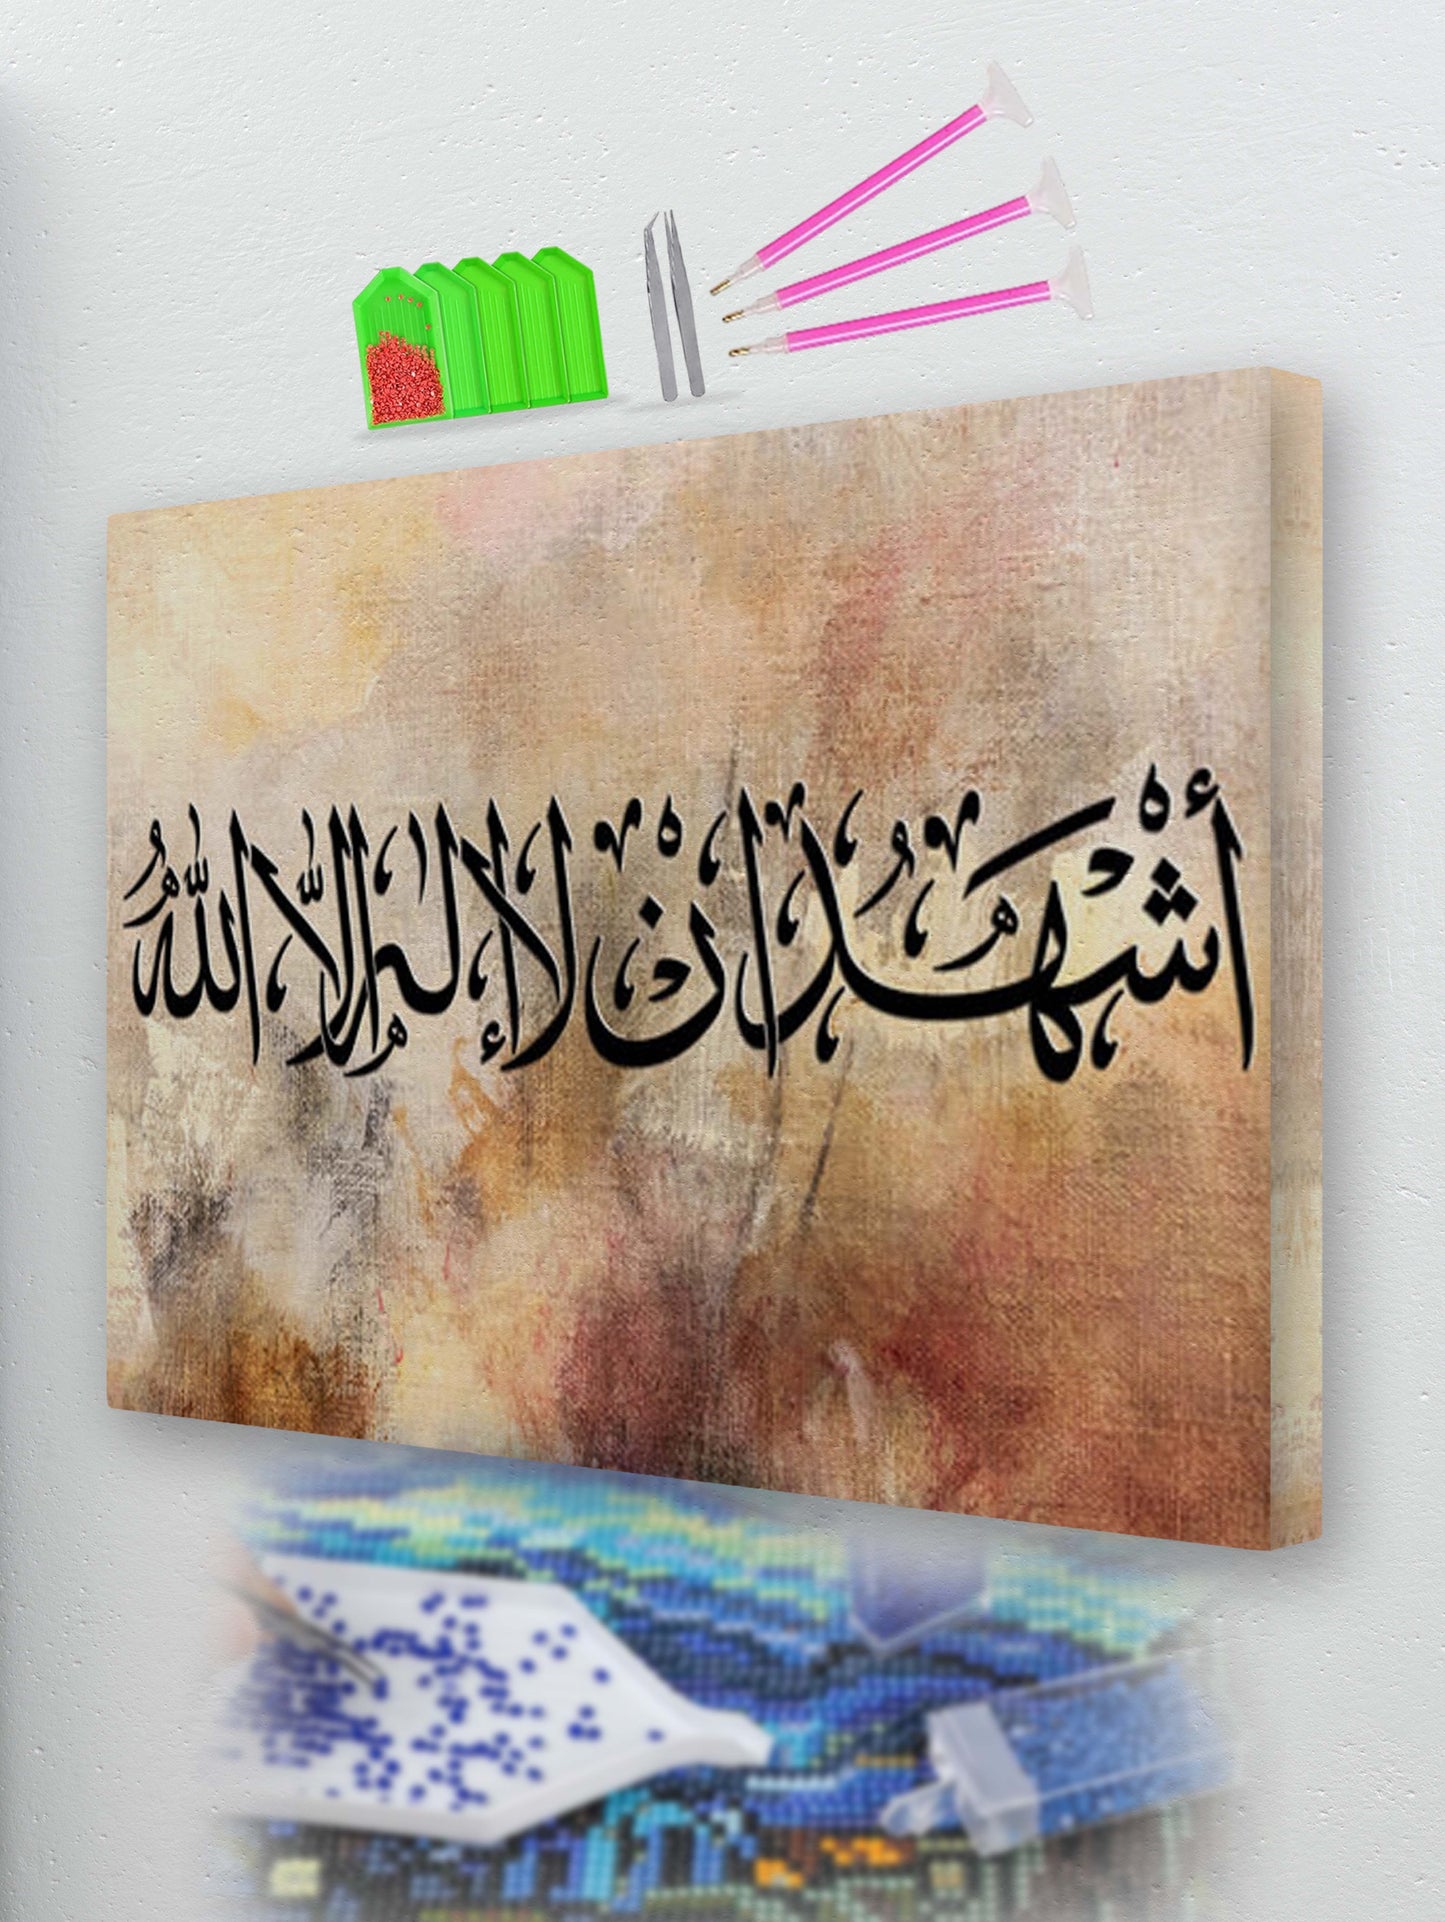 أشهد ان لا إله الا الله